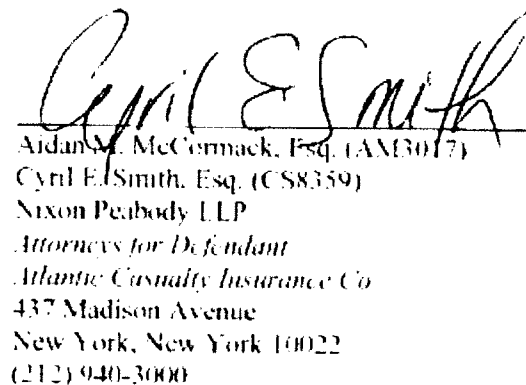 Cyril E Smith
Aidan M. McCormack, Esq. (AM3017)
Cyril E. Smith, Esq. (CS8359)
Nixon Peabody LLP
Attorneys for Defendant
Atlantic Casualty Insurance Co
437 Madison Avenue
New York, New York 10022
(212) 940-3000